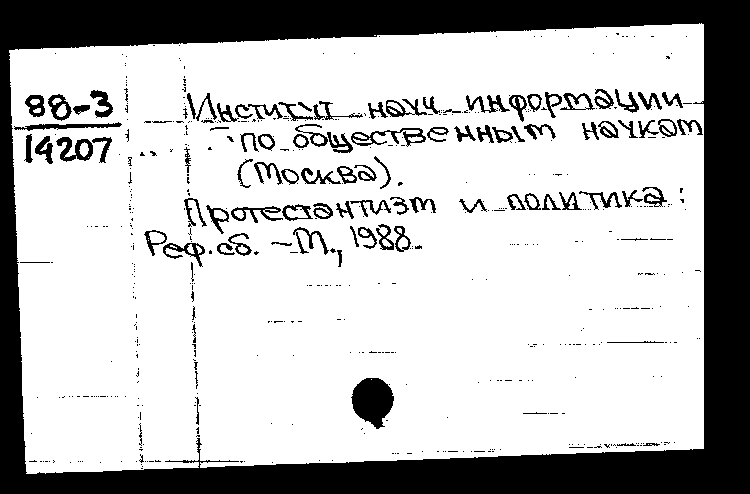 88-3
14207
Институт науч информации
по общественным наукам
(Москва).
Протестантизм и политика:
Реф. сб. - М., 1988.